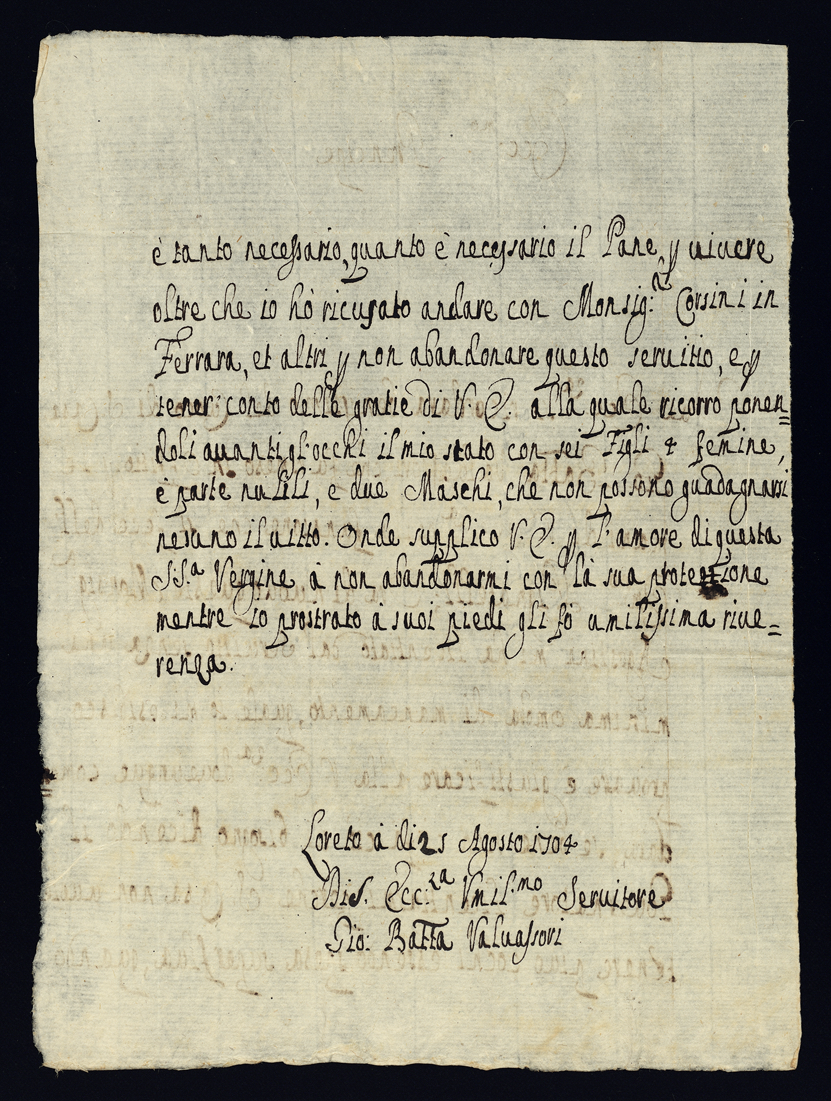 è tanto necessario, quanto è necessario il Pane, p uiuere
oltre che io hò ricusato andare con Monsig.re Corsini in
Ferrara, et altri p non abandonare questo seruitio, e p
tener' conto delle gratie di V. E. alla quale ricorro ponen=
doli auanti gl'occhi il mio stato con sei Figli 4 femine,
è parte nubili, e due Maschi, che non possono guadagnarsi
nesuno il uitto. Onde supplico V. E. p l'amore di questa
S.S.a Vergine à non abandonarmi con la sua protettione
mentre io prostrato à suoi piedi gli fò umilissima riue=
renza.
Loreto à di 25 Agosto 1704
Di S. Ecc.za Vmil.mo Seruitore
Gio: Batta Valuassori